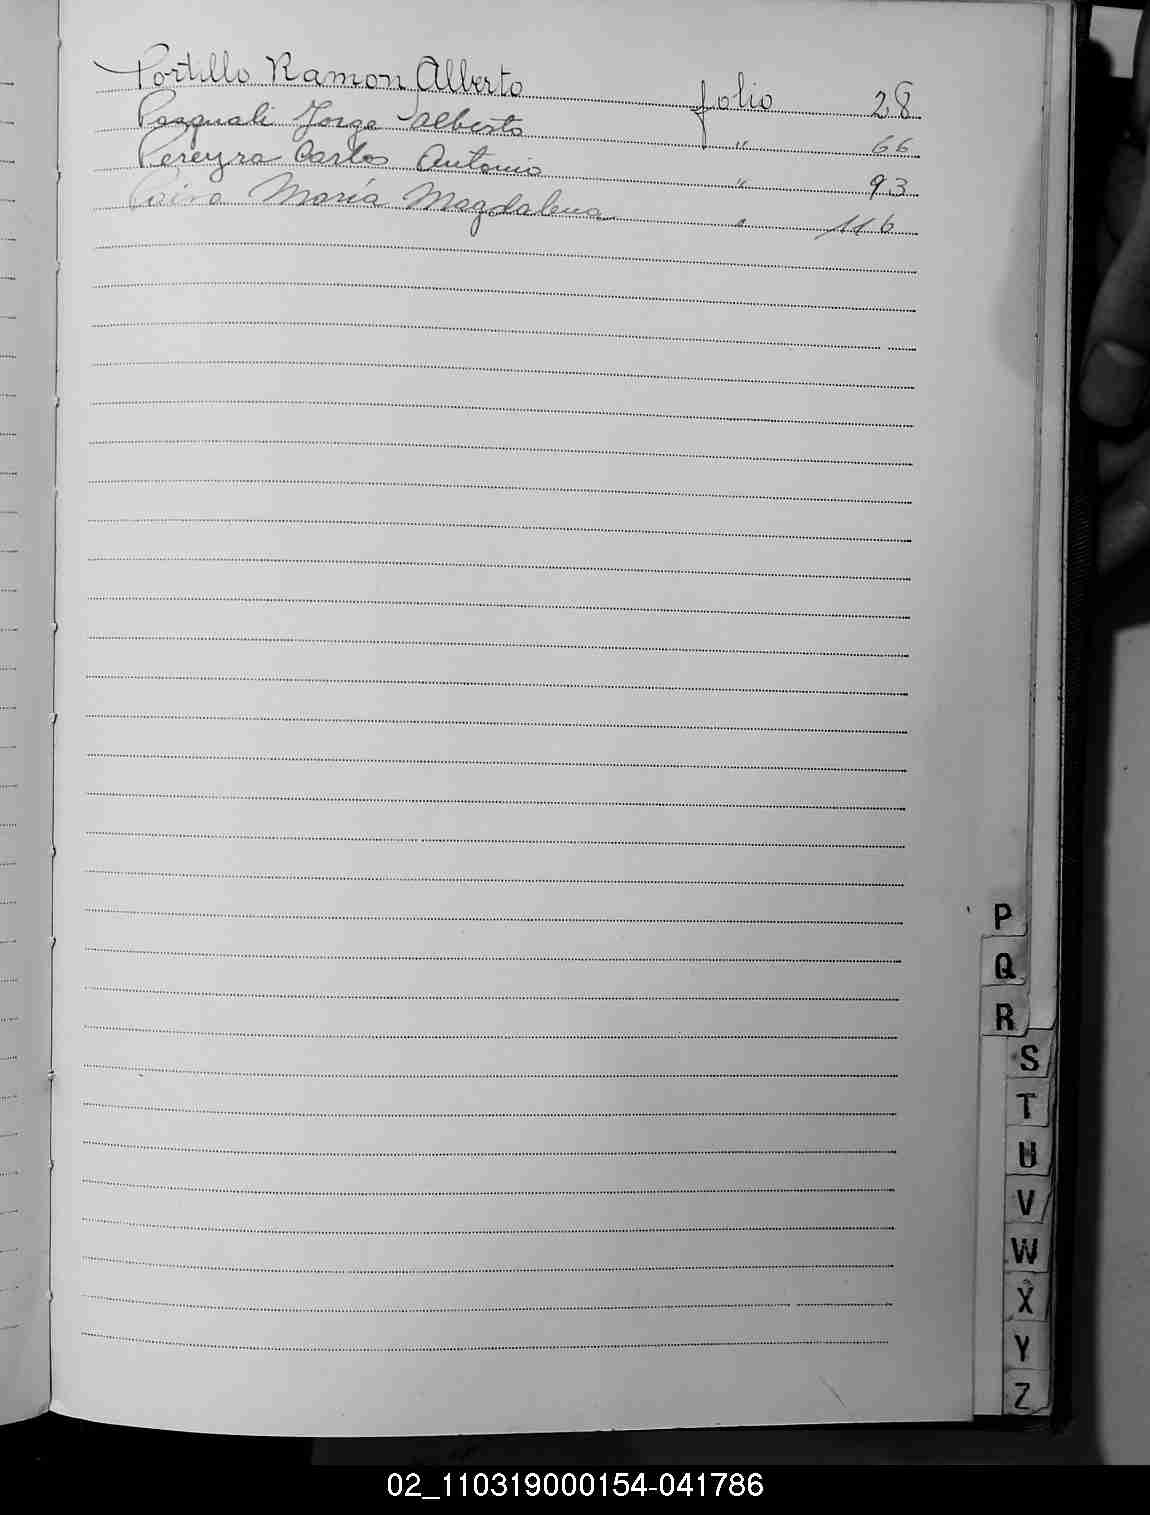 Portillo Ramon Alberto folio 28
Pasquali Jorge Alberto " 66
Pereyra Carlos Antonio " 93
María Magdalena " 116
P
Q
R
S
T
U
V
W
X
Y
Z
02_110319000154-041786